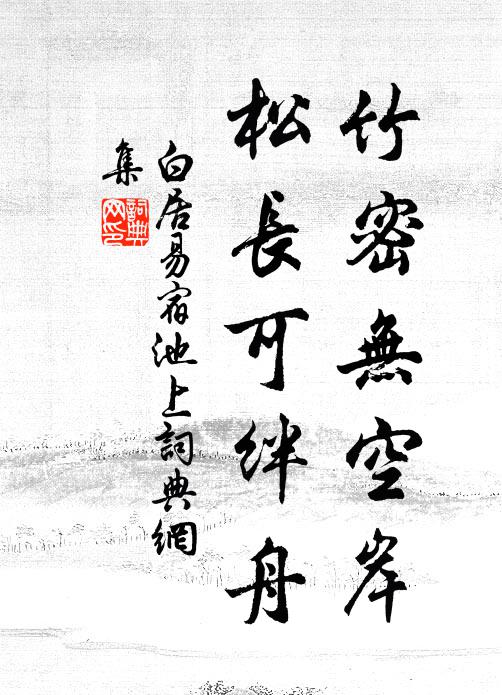 竹密無空岸
松長可絆舟
白居易宿池上詞典網
集
詞典網印